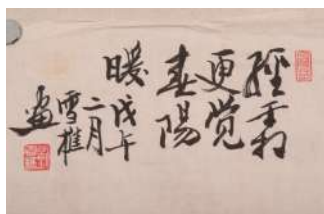 經霜
更觉
春陽
暖戊午
二月
雪樵
畫